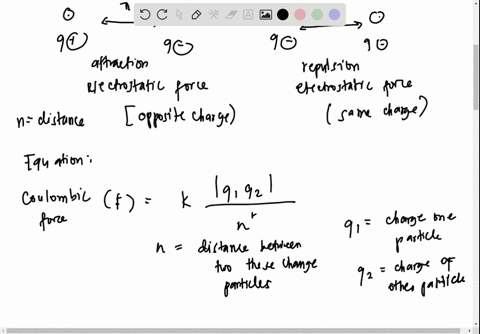 n
q(+) q(-) q(-) q(-)
attraction
electrostatic force
repulsion
electrostatic force
n = distance
[opposite charge)
(same charge)
Equation:
Coulombic force (f) = k |q1 q2| / n²
n = distance between
two these charge
particles
q1 = charge one
particle
q2 = charge of
other particle